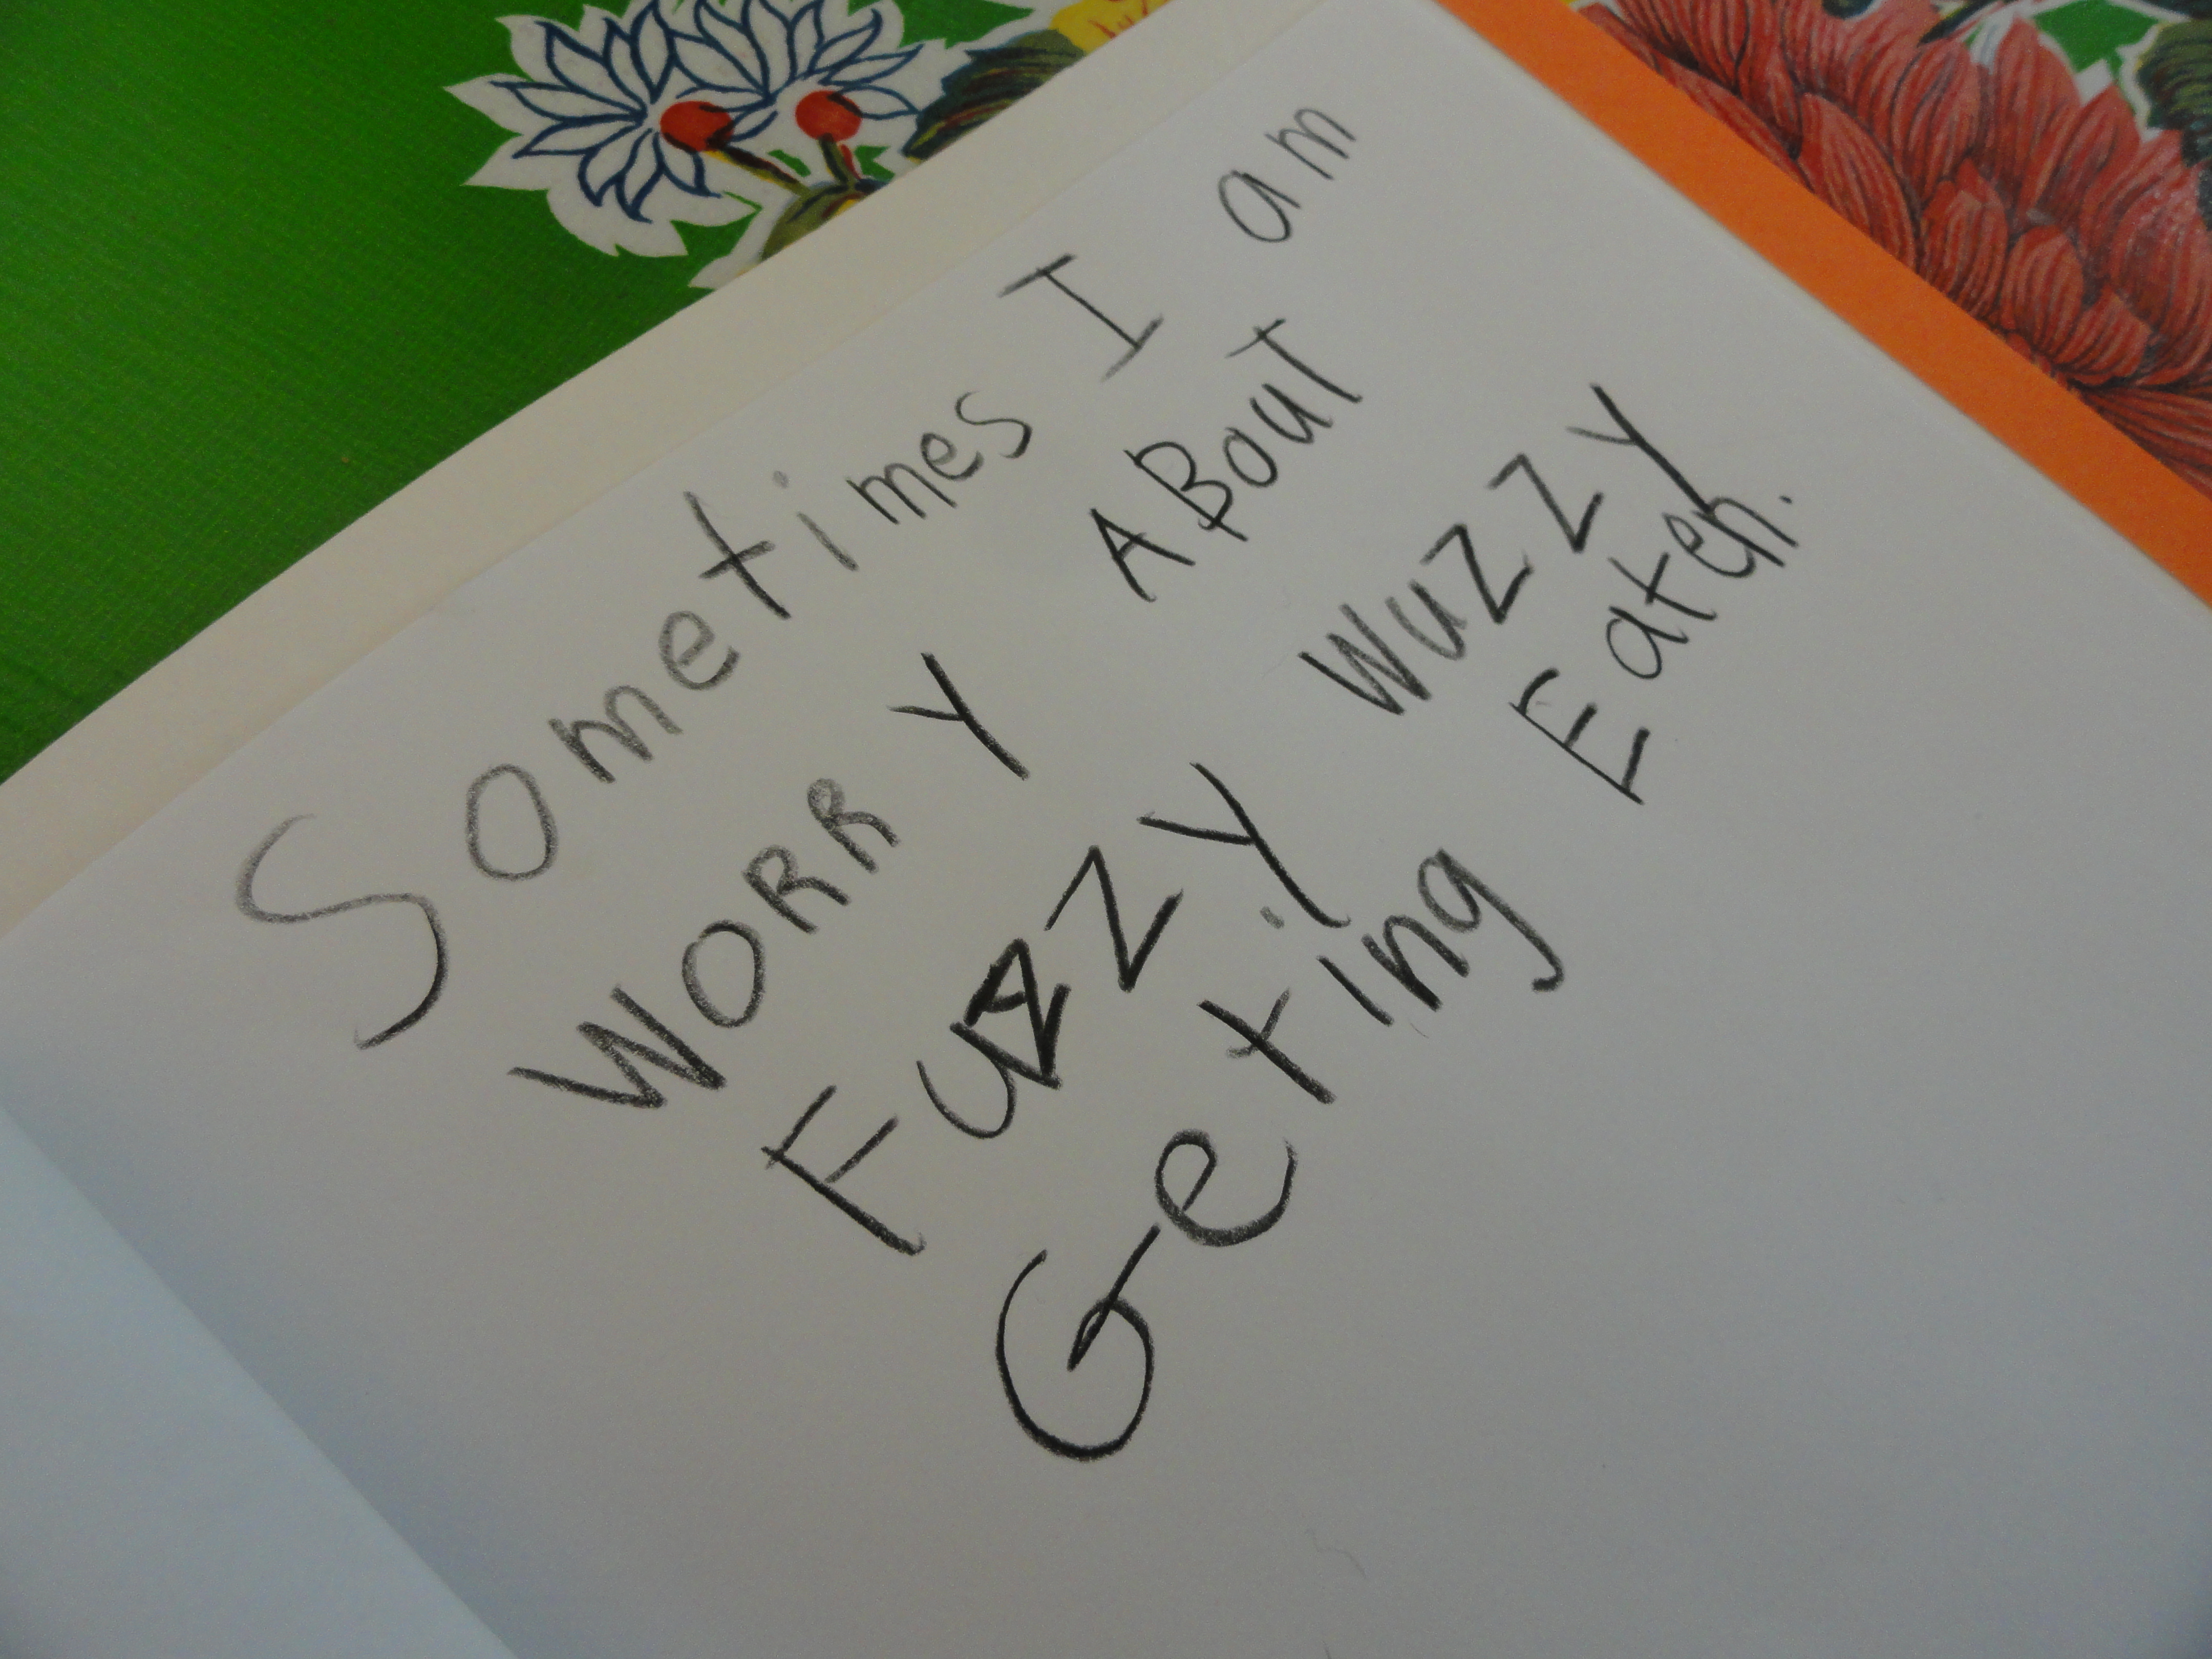 Sometimes I am
WORRY ABout
FUZZY WUZZY
Geting Eaten.